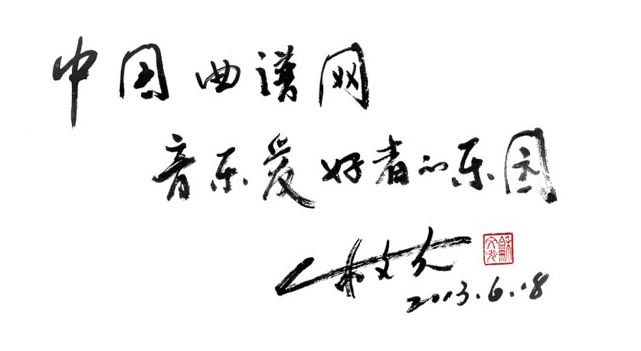 中国曲谱网
音乐爱好者的乐园
2013.6.18